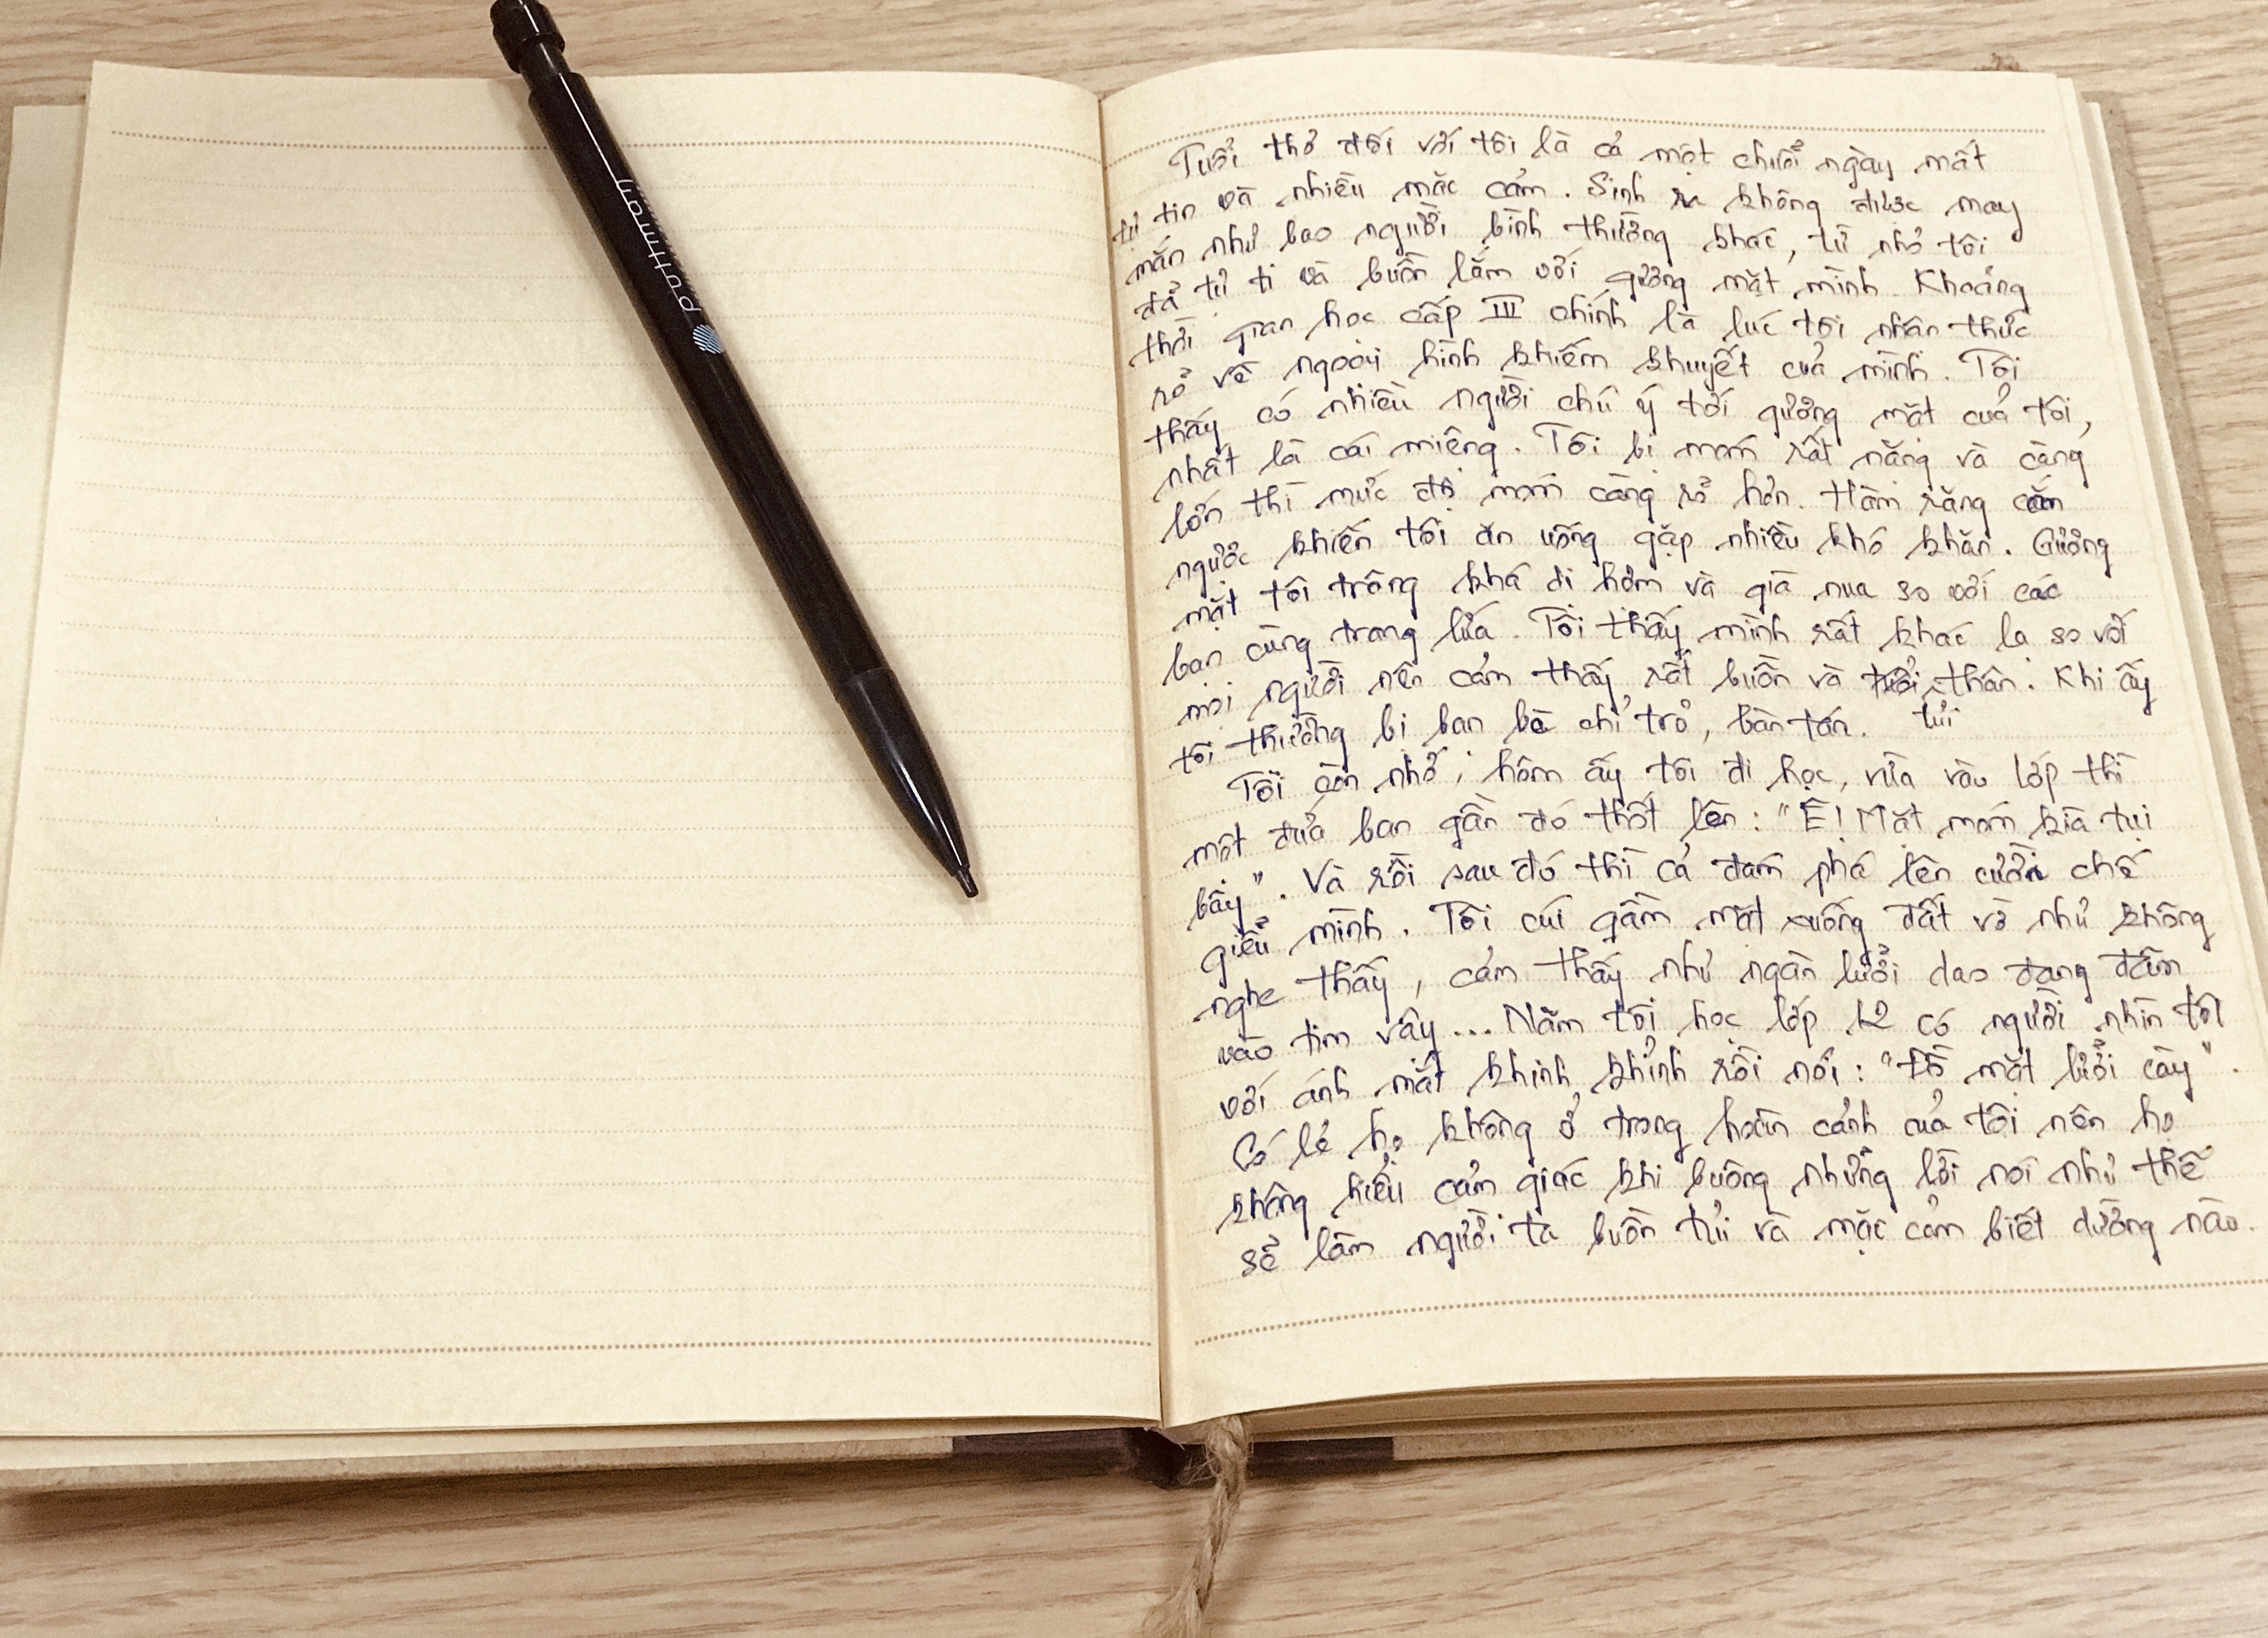 putmati
Tuổi thơ đối với tôi là cả một chuỗi ngày mất
tự tin và nhiều mặc cảm. Sinh ra không được may
mắn như bao người bình thường khác, từ nhỏ tôi
đã tự ti và buồn lắm với gương mặt mình. Khoảng
thời gian học cấp III chính là lúc tôi nhận thức
rỏ về ngoại hình khiếm khuyết của mình. Tôi
thấy có nhiều người chú ý tới gương mặt của tôi,
nhất là cái miệng. Tôi bị móm rất nặng và càng
lớn thì mức độ móm càng rỏ hơn. Hàm răng cắn
ngược khiến tôi ăn uống gặp nhiều khó khăn. Gương
mặt tôi trông khá dị hợm và già nua so với các
bạn cùng trang lứa. Tôi thấy mình rất khác lạ so với
mọi người nên cảm thấy rất buồn và tủi thân. Khi ấy
tôi thường bị bạn bè chỉ trỏ, bàn tán.
Tôi còn nhớ, hôm ấy tôi đi học, vừa vào lớp thì
một đứa bạn gần đó thốt lên: "Ê! Mặt móm kìa tụi
bây". Và rồi sau đó thì cả đám phá lên cười chế
giễu mình. Tôi cúi gằm mặt xuống đất vờ như không
nghe thấy, cảm thấy như ngàn lưỡi dao đang đâm
vào tim vậy... Năm tôi học lớp 12 có người nhìn tôi
với ánh mắt khinh khỉnh rồi nói: "Đồ mặt lưỡi cày".
Có lẻ họ không ở trong hoàn cảnh của tôi nên họ
không hiểu cảm giác khi buông những lời nói như thế
sẽ làm người ta buồn tủi và mặc cảm biết dường nào.